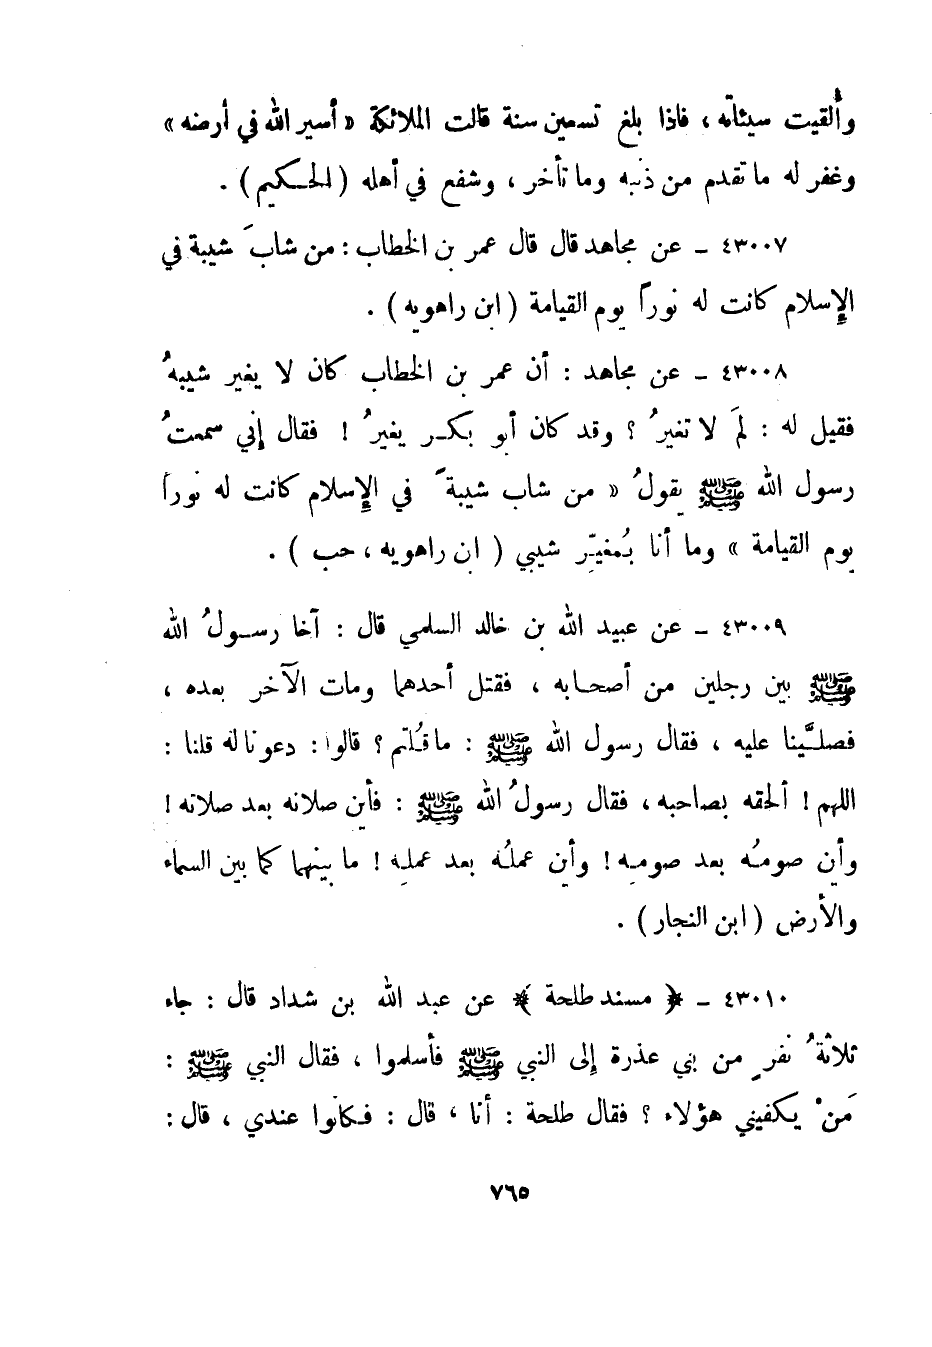 وأُلقيت سيئاته ، فاذا بلغ تسعين سنة قالت الملائكة « أسير الله في أرضه »
وغفر له ما تقدم من ذنبه وما تأخر ، وشفع في أهله ( الحكيم ) .
٤٣٠٠٧ ـ عن مجاهد قال قال عمر بن الخطاب : من شابَ شيبة في
الإِسلام كانت له نوراً يوم القيامة ( ابن راهويه ) .
٤٣٠٠٨ ـ عن مجاهد : أن عمر بن الخطاب كان لا يغير شيبهُ
فقيل له : لمَ لا تغيرُ ؟ وقد كان أبو بكر يغيرُ ! فقال إني سمعتُ
رسول الله ﷺ يقولُ « من شاب شيبةً في الإِسلام كانت له نوراً
يوم القيامة » وما أنا بمُغيِّر شيبي ( ابن راهويه ، حب ) .
٤٣٠٠٩ ـ عن عبيد الله بن خالد السلمي قال : آخا رسولُ الله
ﷺ بين رجلين من أصحابه ، فقتل أحدهما ومات الآخر بعده ،
فصلَّينا عليه ، فقال رسول الله ﷺ : ما قُلتم ؟ قالوا : دعونا له قلنا :
اللهم ! ألحقه بصاحبه ، فقال رسولُ الله ﷺ : فأين صلاته بعد صلاته !
وأين صومُه بعد صومِه ! وأين عملُه بعد عملِه ! ما بينهما كما بين السماء
والأرض ( ابن النجار ) .
٤٣٠١٠ ـ ﴿ مسند طلحة ﴾ عن عبد الله بن شداد قال : جاء
ثلاثةُ نفرٍ من بني عذرة إِلى النبي ﷺ فأسلموا ، فقال النبي ﷺ :
مَنْ يكفيني هؤلاء ؟ فقال طلحة : أنا ، قال : فكانوا عندي ، قال :
٧٦٥